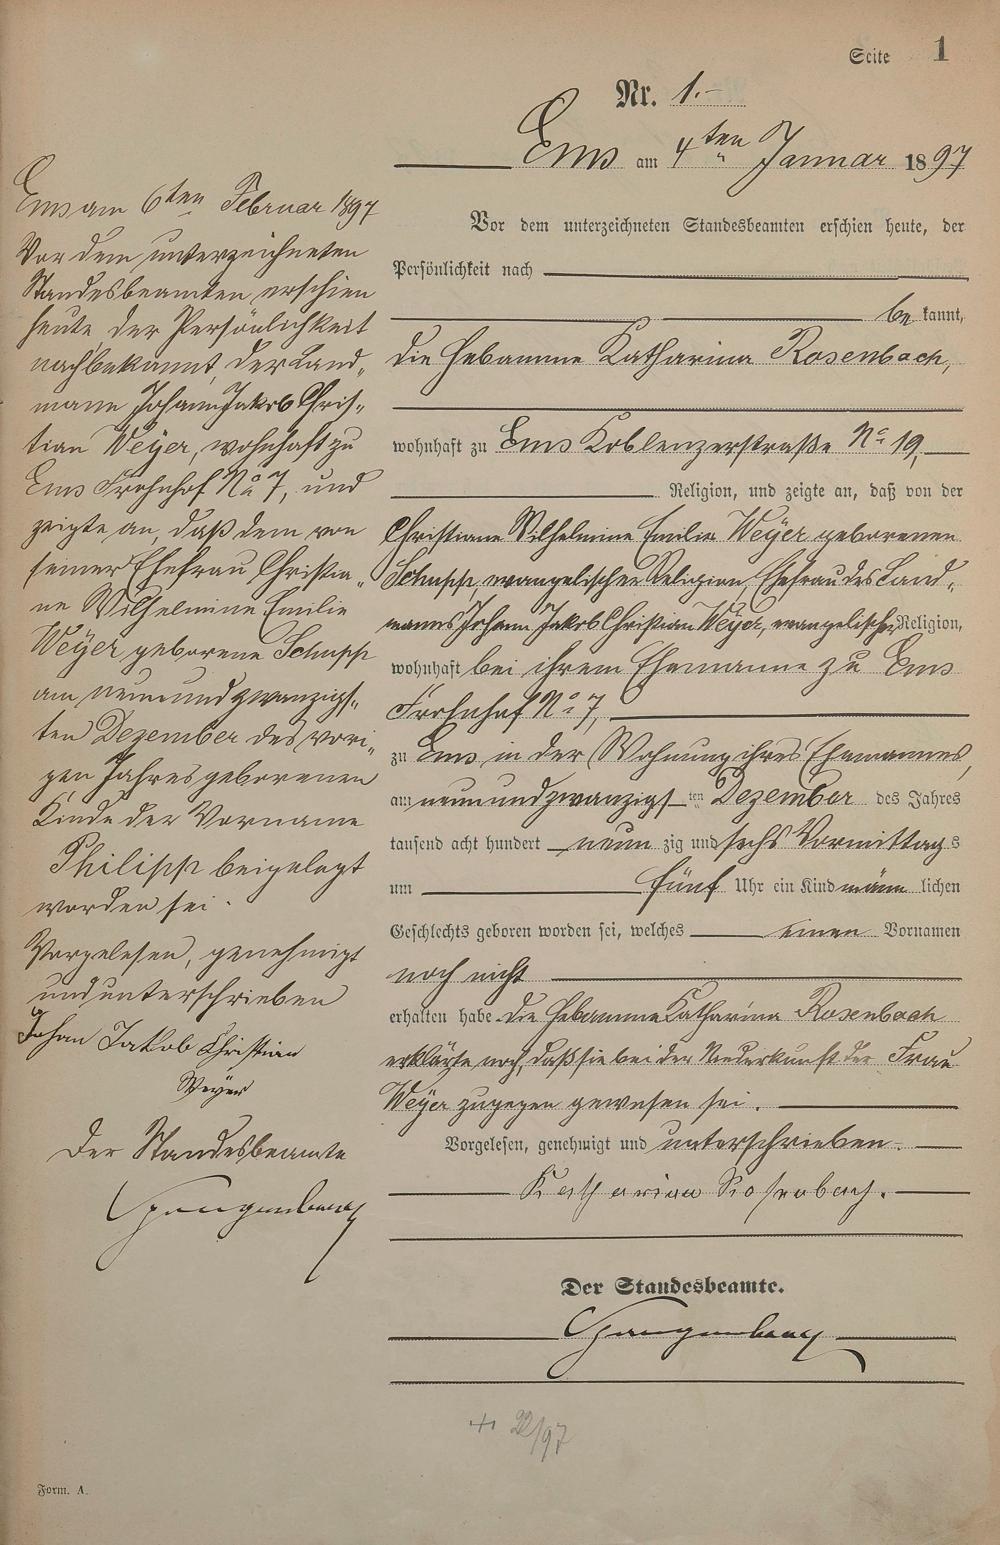 Seite 1
Nr. 1.-
Ems am 4ten Januar 1897
Vor dem unterzeichneten Standesbeamten erschien heute, der
Persönlichkeit nach
be kannt,
die Hebamme Katharina Rosenbach,
wohnhaft zu Ems Koblenzerstraße No 19,
Religion, und zeigte an, daß von der
Christiane Wilhelmine Emilie Weyer geborenen
Schupp, evangelischer Religion, Ehefrau des Land„
manns Johann Jakob Christian Weyer, evangelischer Religion,
wohnhaft bei ihrem Ehemanne zu Ems
Frohnhof No 7,
zu Ems in der Wohnung ihres Ehemannes,
am neunundzwanzigs ten Dezember des Jahres
tausend acht hundert neun zig und sechs Vormittag s
um fünf Uhr ein Kind männ lichen
Geschlechts geboren worden sei, welches einen Vornamen
noch nicht
erhalten habe. Die Hebamme Katharina Rosenbach
erklärte noch, daß sie bei der Niederkunft der Frau
Weyer zugegen gewesen sei.
Vorgelesen, genehmigt und unterschrieben.
Katharina Rosenbach.
Der Standesbeamte.
+ 22/97
Ems am 6ten Februar 1897
Vor dem unterzeichneten
Standesbeamten erschien
heute, der Persönlichkeit
nach bekannt, der Land„
mann Johann Jakob Chris„
tian Weyer, wohnhaft zu
Ems Frohnhof No 7, und
zeigte an, daß dem von
seiner Ehefrau Christia„
ne Wilhelmine Emilie
Weyer geborene Schupp
am neunundzwanzigs„
ten Dezember des vori„
gen Jahres geborenen
Kinde der Vorname
Philipp beigelegt
worden sei.
Vorgelesen, genehmigt
und unterschrieben
Johan Jakob Christian
Weyer
Der Standesbeamte
Form. A.